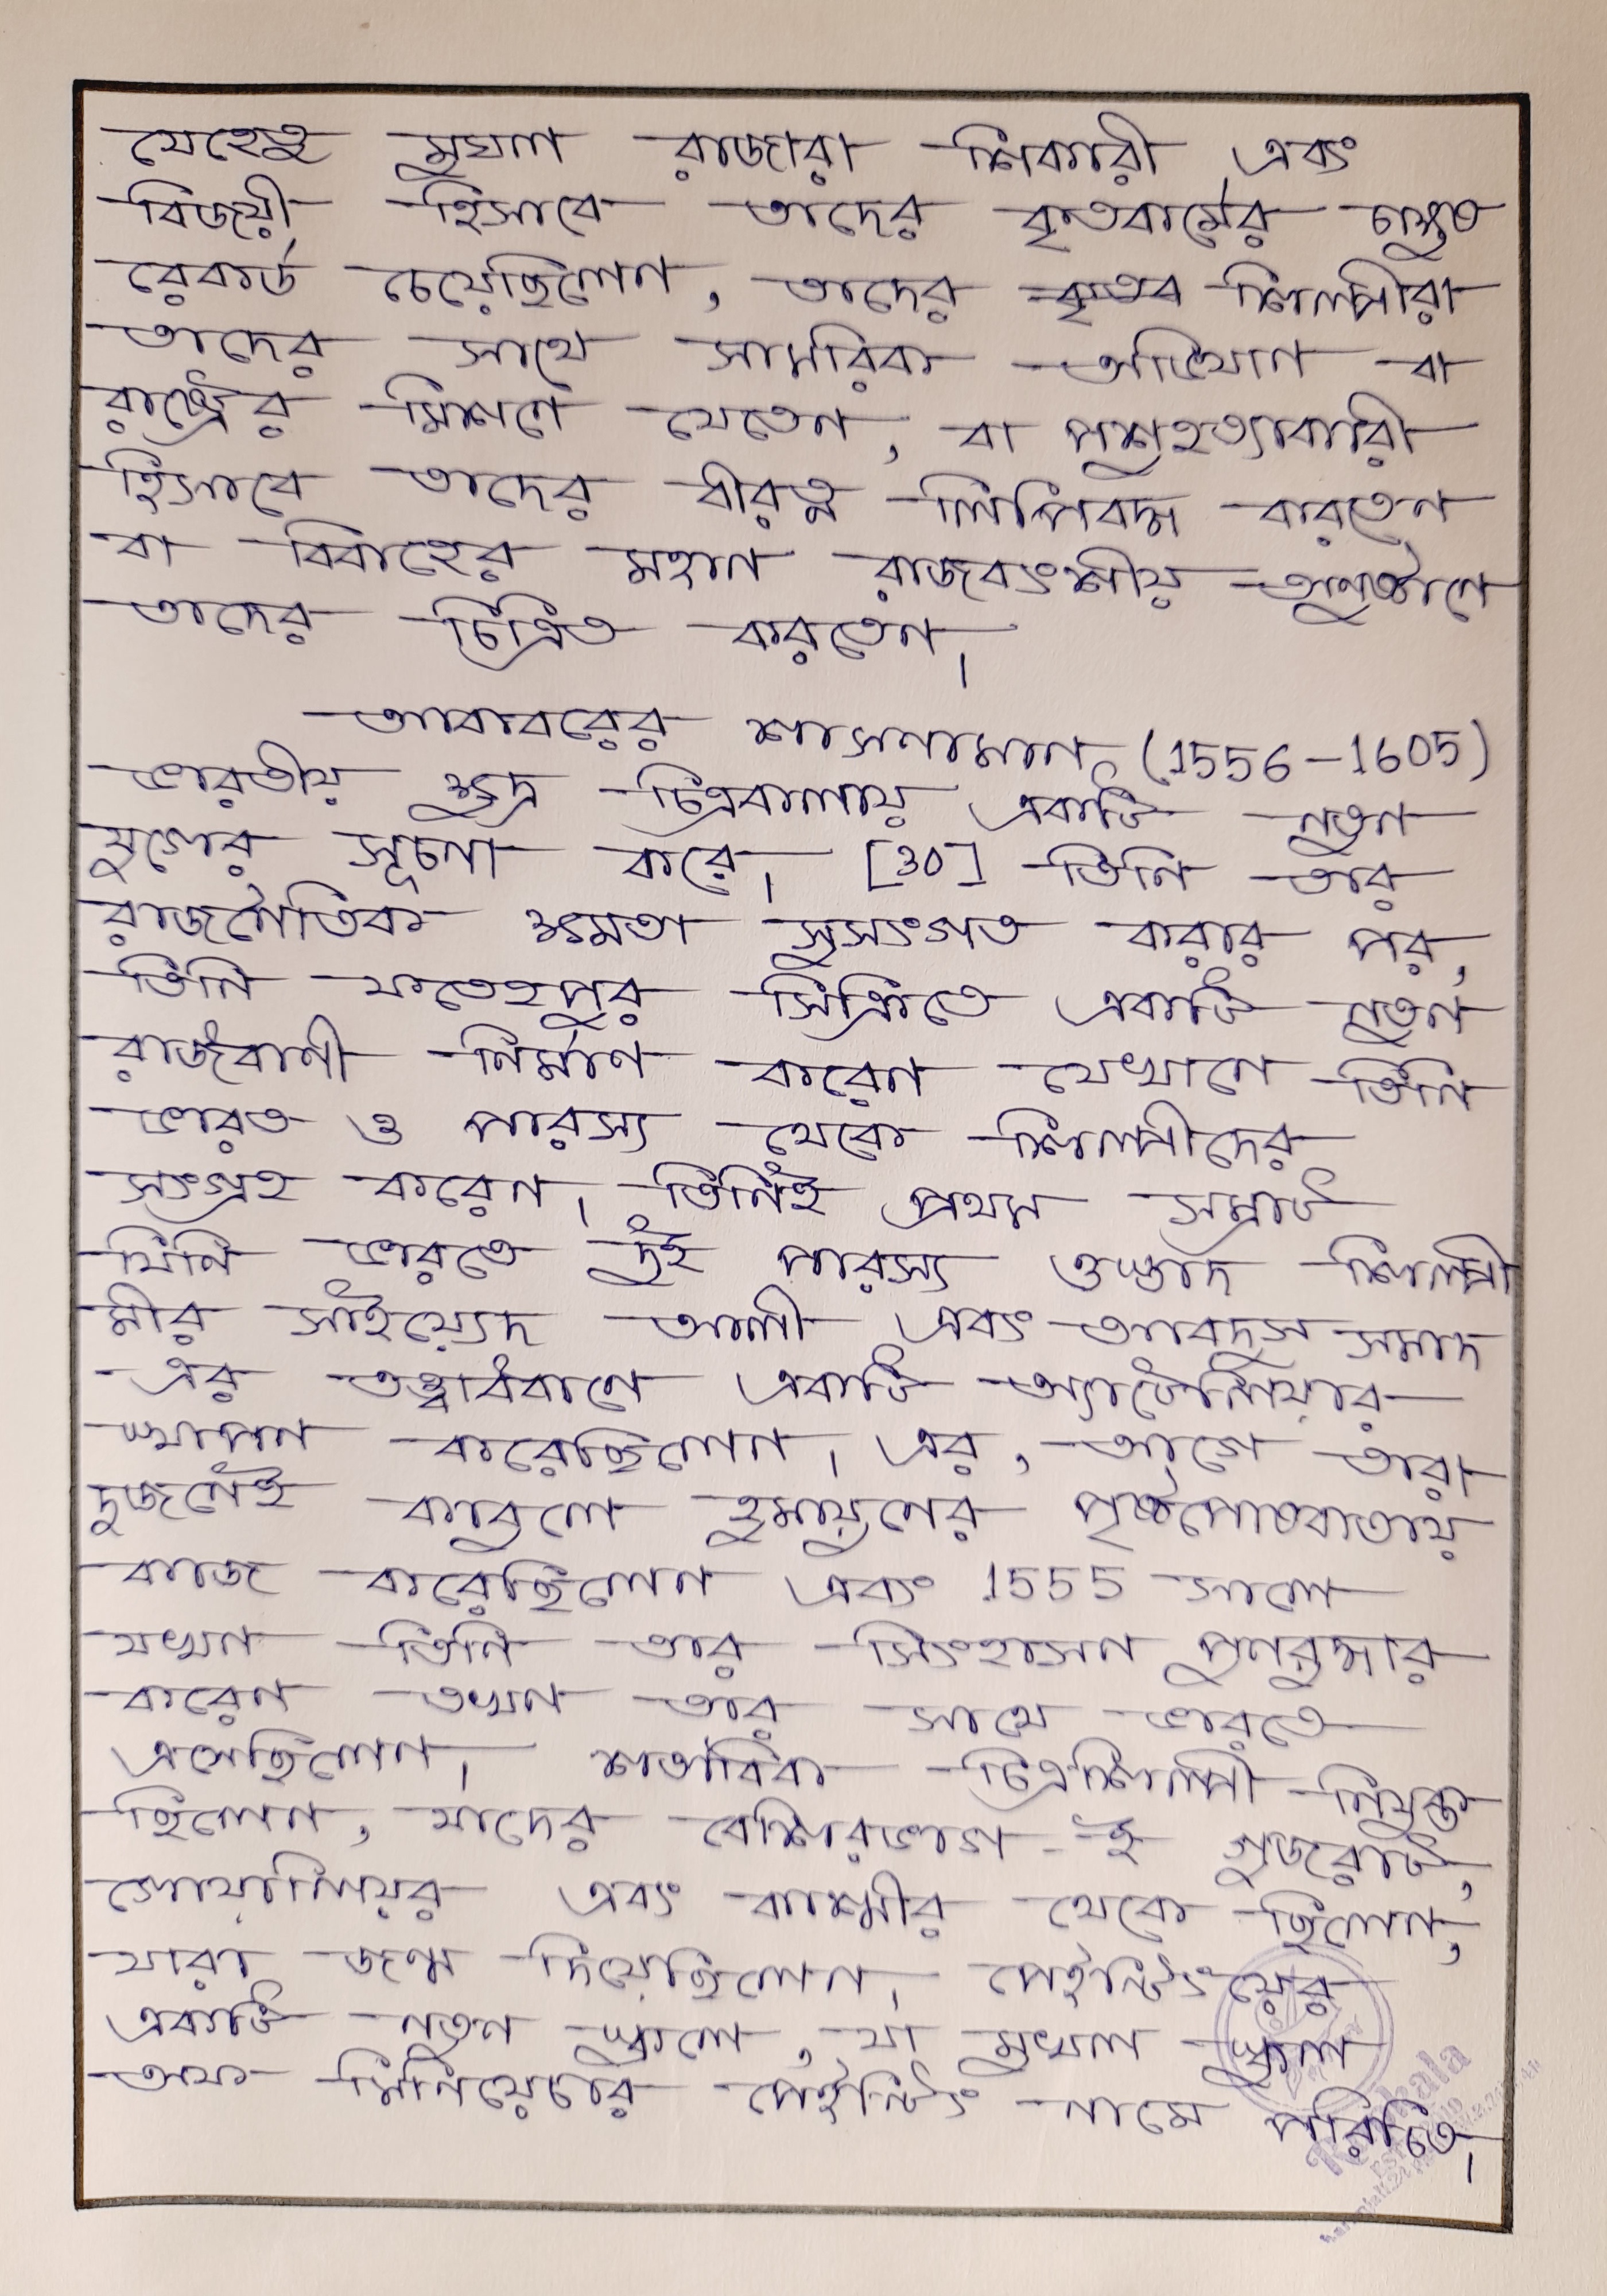 যেহেতু মুঘল রাজারা শিকারী এবং
বিজয়ী হিসাবে তাদের কৃতকর্মের চাক্ষুত
রেকর্ড চেয়েছিলেন, তাদের শিল্পীরা
তাদের সাথে সামরিক অভিযান বা
রাষ্ট্রের মিশনে যেতেন, বা পশুহত্যাকারী
হিসাবে তাদের বীরত্ব লিপিবদ্ধ করতেন
বা বিবাহের মহান রাজবংশীয় অনুষ্ঠানে
তাদের চিত্রিত করতেন।
আকবরের শাসনামল (1556-1605)
ভারতীয় ক্ষুদ্র চিত্রকলায় একটি নতুন
যুগের সূচনা করে। [30] তিনি তার
রাজনৈতিক ক্ষমতা সুসংগত করার পর,
তিনি ফতেহপুর সিক্রিতে একটি নতুন
রাজধানী নির্মাণ করেন যেখানে তিনি
ভারত ও পারস্য থেকে শিল্পীদের
সংগ্রহ করেন। তিনিই প্রথম সম্রাট
যিনি ভারতে দুই পারস্য ওস্তাদ শিল্পী
মীর সাইয়্যেদ আলী এবং আবদুস সমাদ
এর তত্ত্বাবধানে একটি অ্যাটেলিয়ার
স্থাপন করেছিলেন। এর, আগে তারা
দুজনেই কাবুলে হুমায়ুনের পৃষ্ঠপোষকতায়
কাজ করেছিলেন এবং 1555 সালে
যখন তিনি তার সিংহাসন পুনরুদ্ধার
করেন তখন তার সাথে ভারতে
এসেছিলেন। শতাধিক চিত্রশিল্পী নিযুক্ত
ছিলেন, যাদের বেশিরভাগ-ই গুজরাট,
গোয়ালিয়র এবং কাশ্মীর থেকে ছিলেন,
যারা জন্ম দিয়েছিলেন। পেইন্টিংয়ের
একটি নতুন স্কুলে, যা মুখল স্কুল
অফ মিনিয়েচার পেইন্টিং নামে পরিচিত।